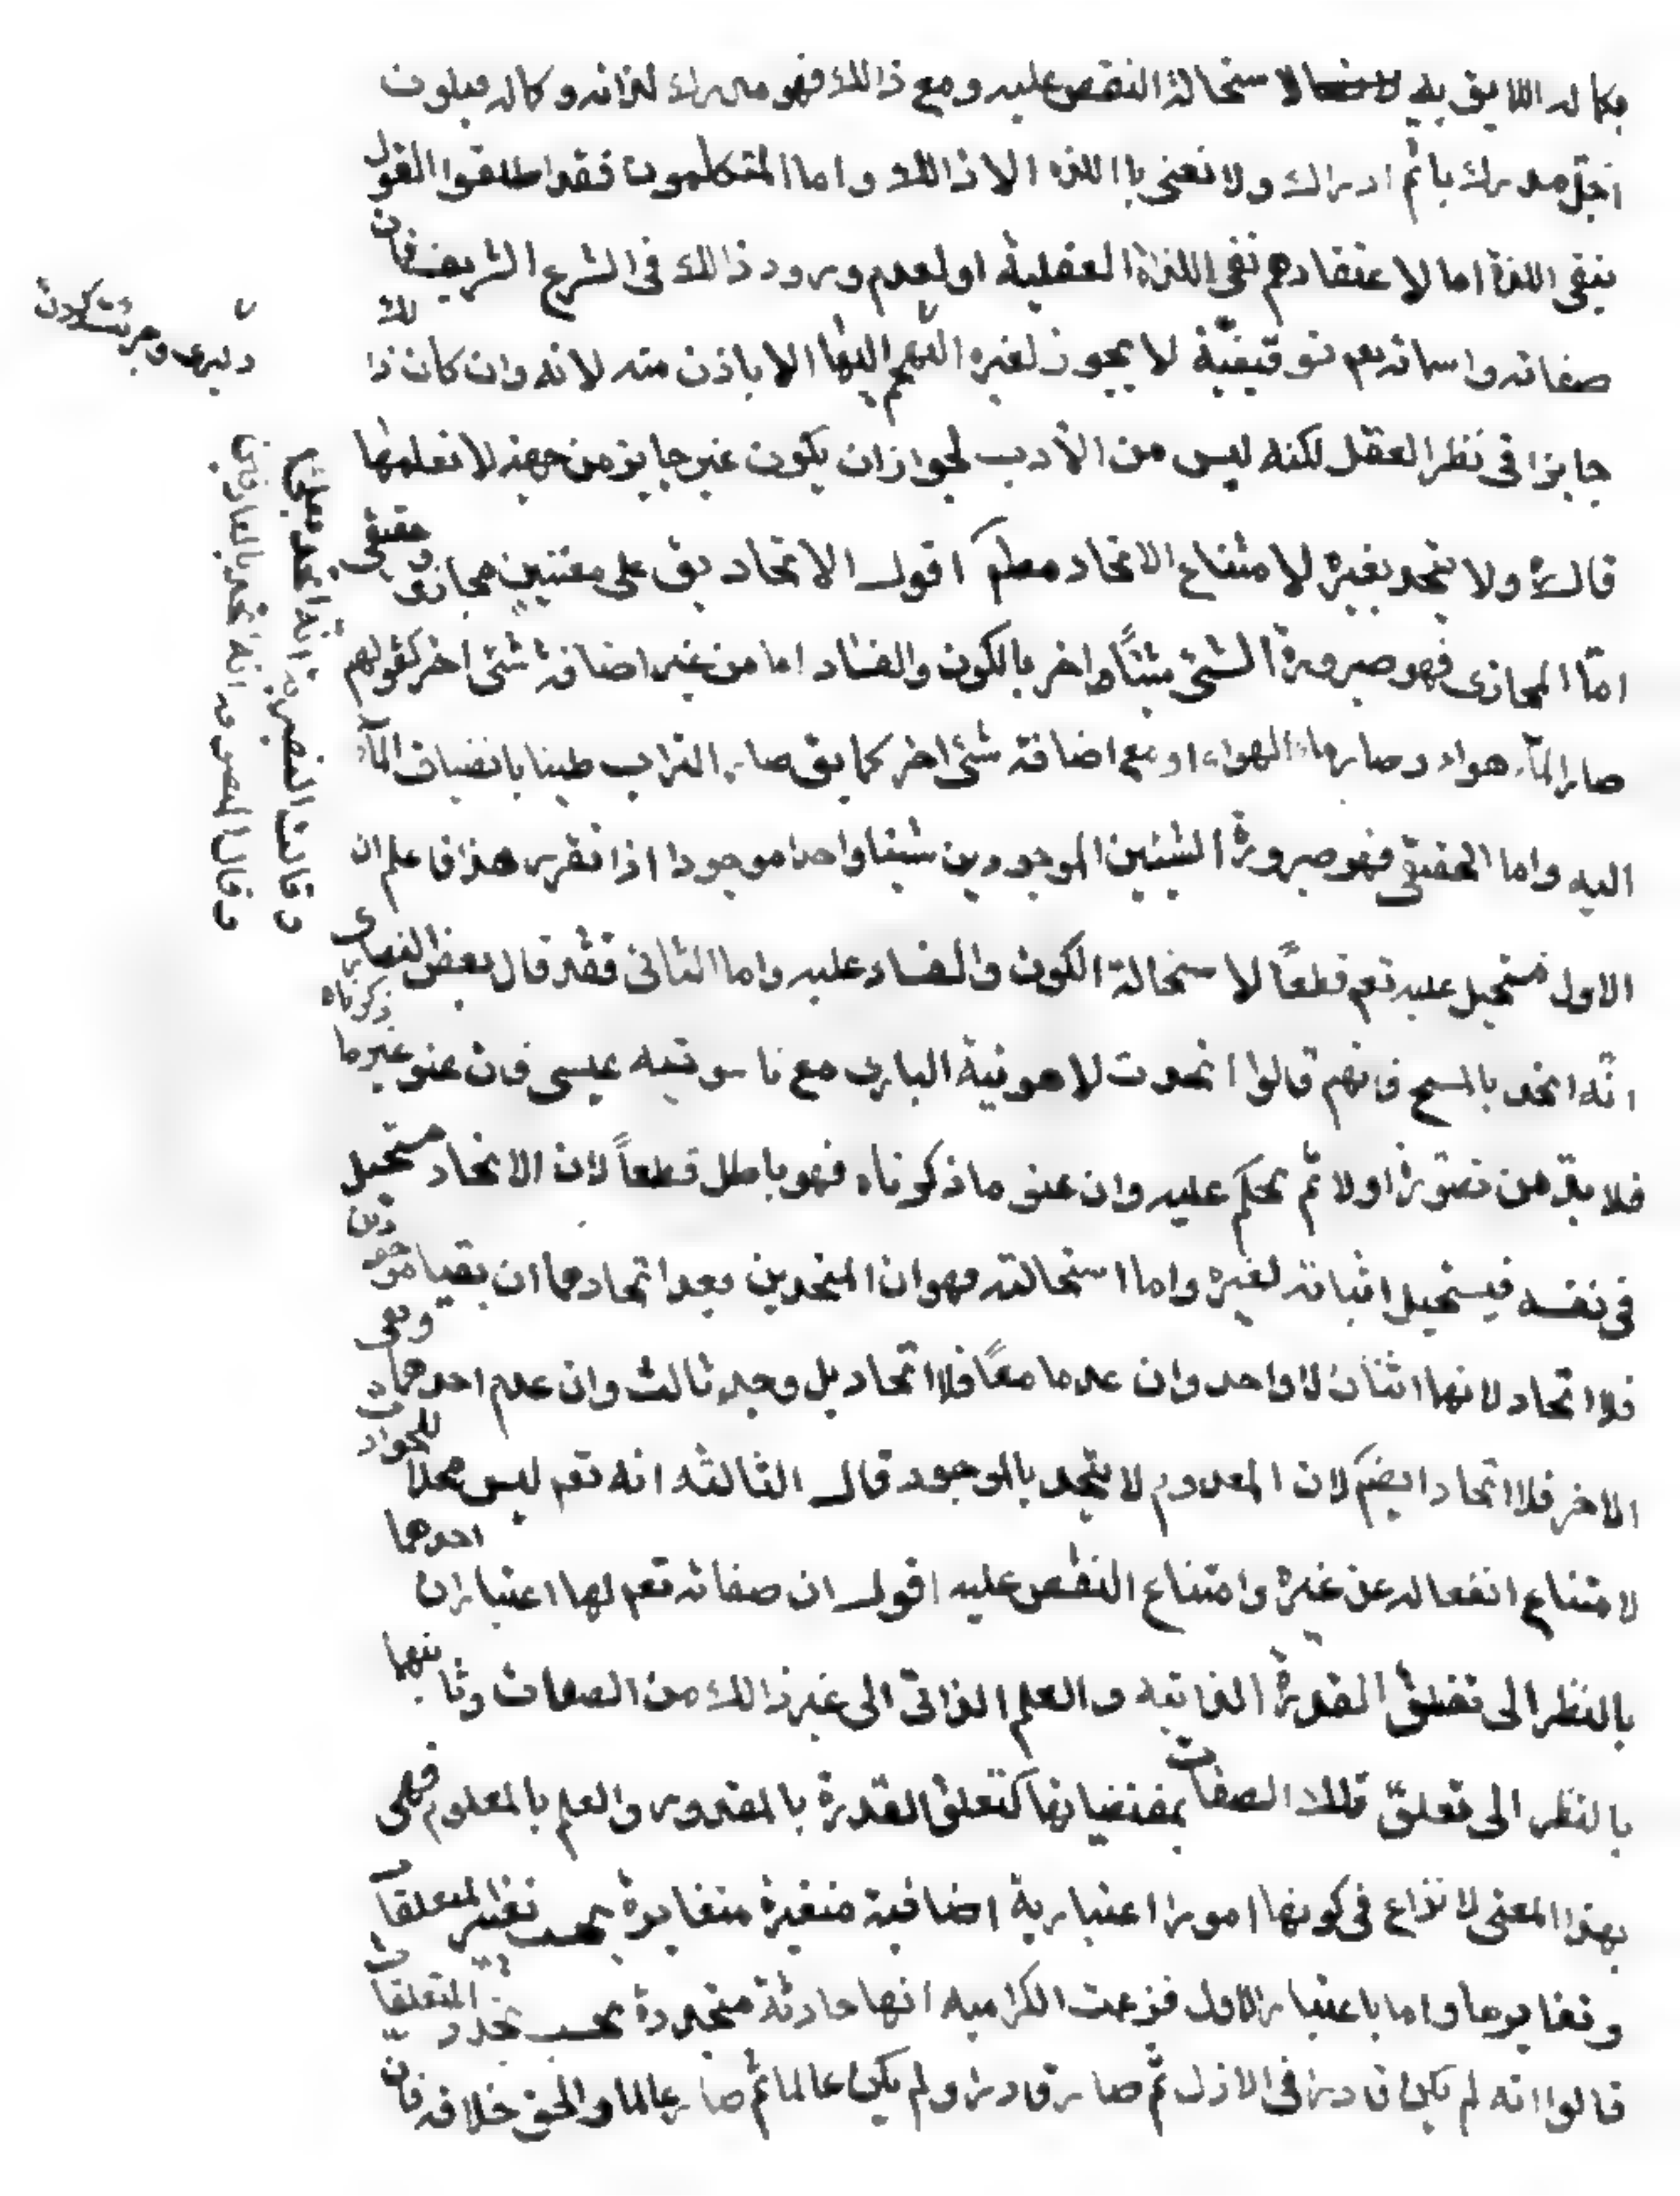 بكماله اللايق به لاستحالة النقص عليه ومع ذالك فهو مدرك لذاته وكماله فيكون
اجل مدرك باتم ادراك ولا نعنى باللذه الا ذالك واما المتكلمون فقد اطلقوا القول
بنفى اللذة اما لاعتقادهم نفى اللذة العقلية او لعدم ورود ذالك فى الشرع الشريف فان
صفاته واسمائه تعم توقيفية لا يجوز لغيره التهجم اليها الا باذن منه لانه وان كان ذالك
جايزا فى نظر العقل لكنه ليس من الادب لجواز ان يكون غير جايز من جهة لا نعلمها
قال ولا يتحد بغيره لامتناع الاتحاد مطم اقول الاتحاد يق على معنيين مجازى وحقيقى
اما المجازى فهو صيرورة الشئ شيئًا اخر بالكون والفساد اما من غير اضافة شئ اخر كقولهم
صار الماء هواء وصار الهواء ماء او مع اضافة شئ اخر كما يق صار التراب طينا بانضياف الماء
اليه واما الحقيقى فهو صيرورة الشيئين الموجودين شيئا واحدا موجودا اذا تقرر هذا فاعلم ان
الاول مستحيل عليه تعم قطعًا لاستحالة الكون والفساد عليه واما الثانى فقد قال بعض النصارى
انه اتحد بالمسيح فانهم قالوا اتحدت لاهوتية البارى مع ناسوتيه عيسى فان عنو غير ما ذكرناه
فلا بد من تصوره اولا ثم يحكم عليه وان عنو ما ذكرناه فهو باطل قطعاً لان الاتحاد مستحيل
فى نفسه فيستحيل اثباته لغيره واما استحالته فهو ان المتحدين بعد اتحادهما ان بقيا موجودين
فلا اتحاد لانهما اثنان لا واحد وان عدما معًا فلا اتحاد بل وجد ثالث وان عدم احدهما وبقى
الاخر فلا اتحاد ايضم لان المعدوم لا يتحد بالموجود قال الثالثه انه تعم ليس محلا للحوادث
لامتناع انفعاله عن غيره وامتناع النقص عليه اقول ان صفاته تعم لها اعتباران احدهما
بالنظر الى تعلق القدرة الذاتيه والعلم الذاتى الى غير ذالك من الصفات وثانيهما
بالنظر الى تعلق تلك الصفات بمقتضياتها كتعلق القدرة بالمقدور والعلم بالمعلوم فهى
بهذا المعنى لا نزاع فى كونها امورا اعتبارية اضافية متغيرة متغايرة بحسب تغير المتعلقات
وتغايرها واما باعتبار الاول فزعمت الكراميه انها حادثة متجددة بحسب تجدد المتعلقات
قالوا انه لم يكن قادرا فى الازل ثم صار قادرا ولم يكن عالما ثم صار عالما والحق خلافه فان
وقالت النصيريه انه اتحد بعلى ع
وقال المتصوفه انه اتحد بالعارفين